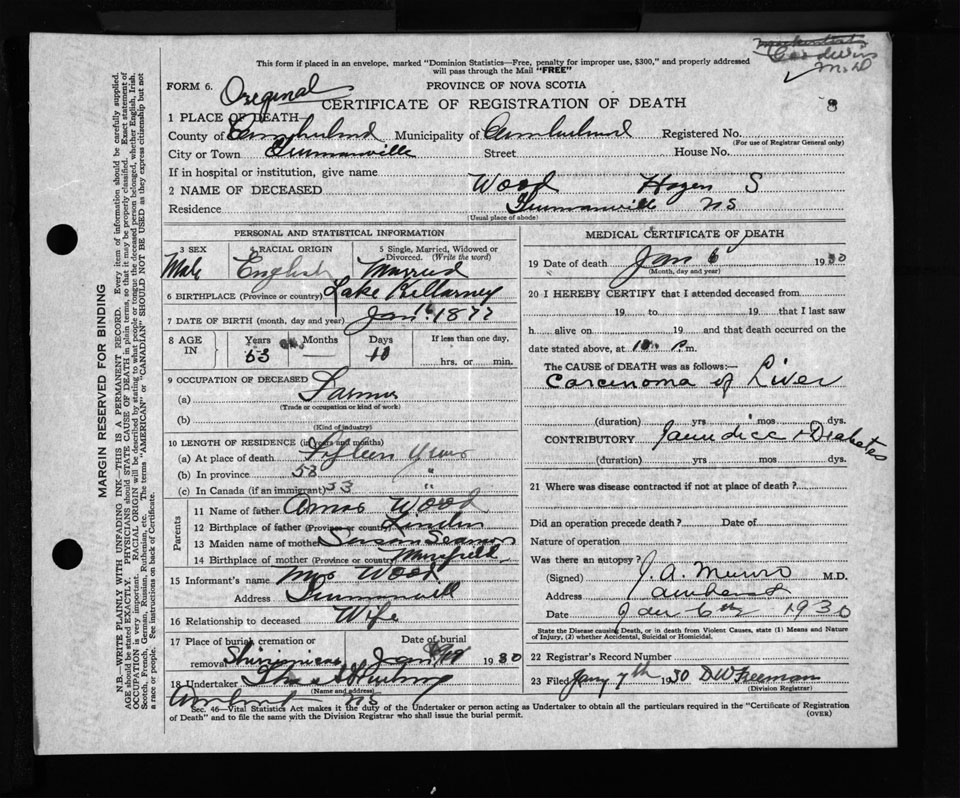 M.D
This form if placed in an envelope, marked "Dominion Statistics—Free, penalty for improper use, $300," and properly addressed
will pass through the Mail "FREE"
FORM 6.
Original
PROVINCE OF NOVA SCOTIA
8
CERTIFICATE OF REGISTRATION OF DEATH
1 PLACE OF DEATH
County of Cumberland Municipality of Cumberland Registered No.
(For use of Registrar General only)
City or Town Truemanville Street House No.
If in hospital or institution, give name
2 NAME OF DECEASED Wood Hazen S
Residence Truemanville NS
(Usual place of abode)
PERSONAL AND STATISTICAL INFORMATION
3 SEX 4 RACIAL ORIGIN 5 Single, Married, Widowed or
Divorced. (Write the word)
Male English Married
6 BIRTHPLACE (Province or country) Lake Killarney
7 DATE OF BIRTH (month, day and year) Jan 1877
8 AGE IN Years Months Days If less than one day,
53 10 hrs. or min.
9 OCCUPATION OF DECEASED
(a) Farmer
(Trade or occupation or kind of work)
(b)
(Kind of industry)
10 LENGTH OF RESIDENCE (in years and months)
(a) At place of death Fifteen Years
(b) In province 53 "
(c) In Canada (if an immigrant) 53 "
Parents
11 Name of father Amos Wood
12 Birthplace of father (Province or country) Linden
13 Maiden name of mother Susan Seaman
14 Birthplace of mother (Province or country)
15 Informant's name Mrs Wood
Address Truemanvill
16 Relationship to deceased Wife
17 Place of burial, cremation or Date of burial
removal Shinimicas Jan 1930
18 Undertaker
(Name and address)
Amherst NS
MEDICAL CERTIFICATE OF DEATH
19 Date of death Jan 6 1930
(Month, day and year)
20 I HEREBY CERTIFY that I attended deceased from
19 to 19 that I last saw
h alive on 19 and that death occurred on
date stated above, at 10 P.m.
The CAUSE OF DEATH was as follows:—
Carcinoma of Liver
(duration) yrs mos dys.
CONTRIBUTORY Jaundice + Diabetes
(duration) yrs. mos dys.
21 Where was disease contracted if not at place of death?
Did an operation precede death? Date of
Nature of operation
Was there an autopsy?
(Signed) J. A. Munro M.D.
Address Amherst
Date Jan 6th 1930
State the Disease causing Death, or in death from Violent Causes, state (1) Means and Nature
of Injury, (2) whether Accidental, Suicidal or Homicidal.
22 Registrar's Record Number
23 Filed Jany 7th 1930 D W Freeman
(Division Registrar)
Sec. 46—Vital Statistics Act makes it the duty of the Undertaker or person acting as Undertaker to obtain all the particulars required in the "Certificate of Registration
of Death" and to file the same with the Division Registrar who shall issue the burial permit.
(OVER)
MARGIN RESERVED FOR BINDING
N.B.—WRITE PLAINLY WITH UNFADING INK—THIS IS A PERMANENT RECORD. Every item of information should be carefully supplied.
AGE should be stated EXACTLY. PHYSICIANS should STATE CAUSE OF DEATH in plain terms, so that it may be properly classified. Exact statement of
OCCUPATION is very important. RACIAL ORIGIN will be described by stating to what people or tongue the deceased person belonged, whether English, Irish,
Scotch, French, German, Russian, Ruthenian, etc. The terms "AMERICAN" or "CANADIAN" SHOULD NOT BE USED as they express citizenship but not
a race or people. See instructions on back of Certificate.